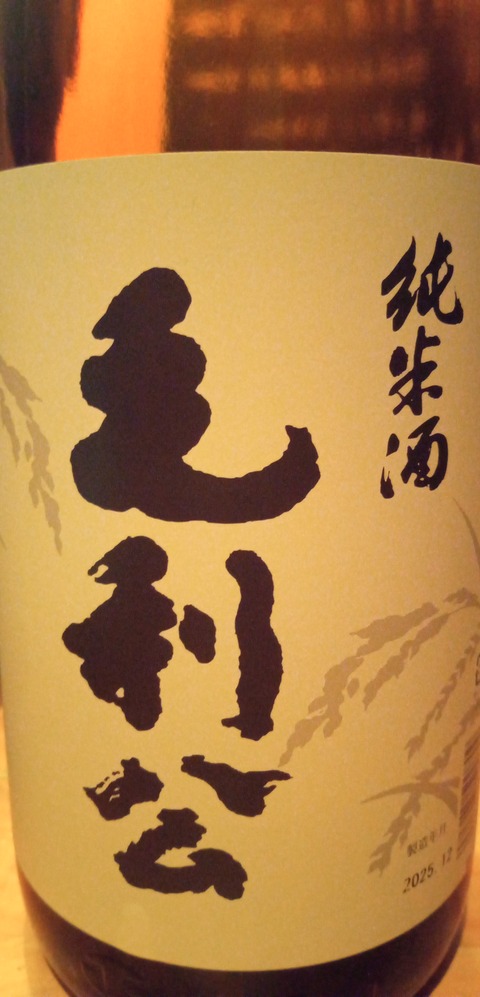 純米酒
毛利公
製造年月
2025.12